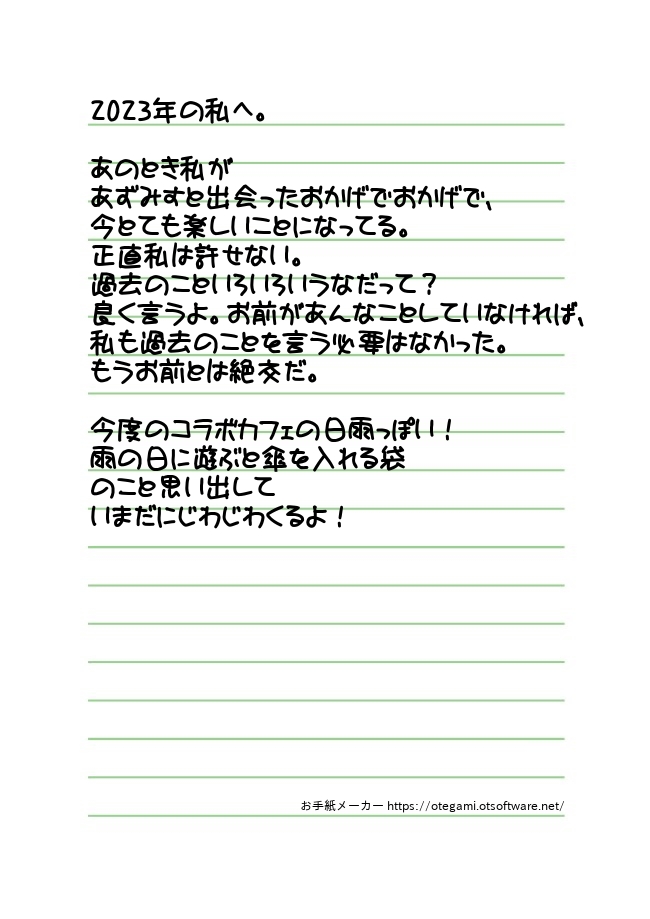 2023年の私へ。
あのとき私が
あずみすと出会ったおかげでおかげで、
今とても楽しいことになってる。
正直私は許せない。
過去のこといろいろいうなだって？
良く言うよ。お前があんなことしていなければ、
私も過去のことを言う必要はなかった。
もうお前とは絶交だ。
今度のコラボカフェの日雨っぽい！
雨の日に遊ぶと傘を入れる袋
のこと思い出して
いまだにじわじわくるよ！
お手紙メーカー https://otegami.otsoftware.net/